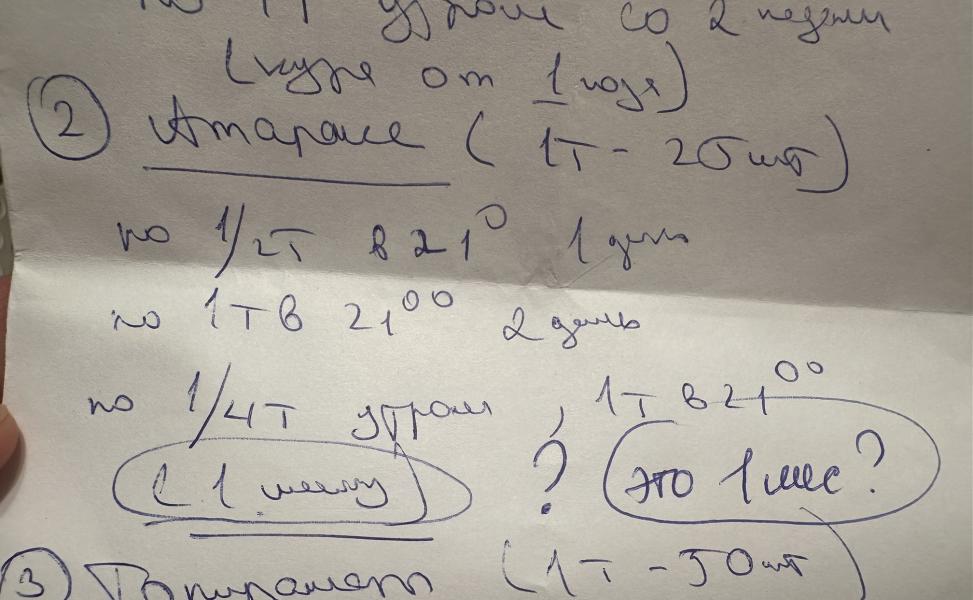 по 1Т утром со 2 недели
(курс от 1 года)
② Атаракс (1Т - 25 мг)
по 1/2Т в 21⁰ 1 день
по 1Т в 21⁰⁰ 2 день
по 1/4Т утром, 1Т в 21⁰⁰
(1 месяц) ? это 1 мес?
③ Топирамат (1Т - 50 мг)